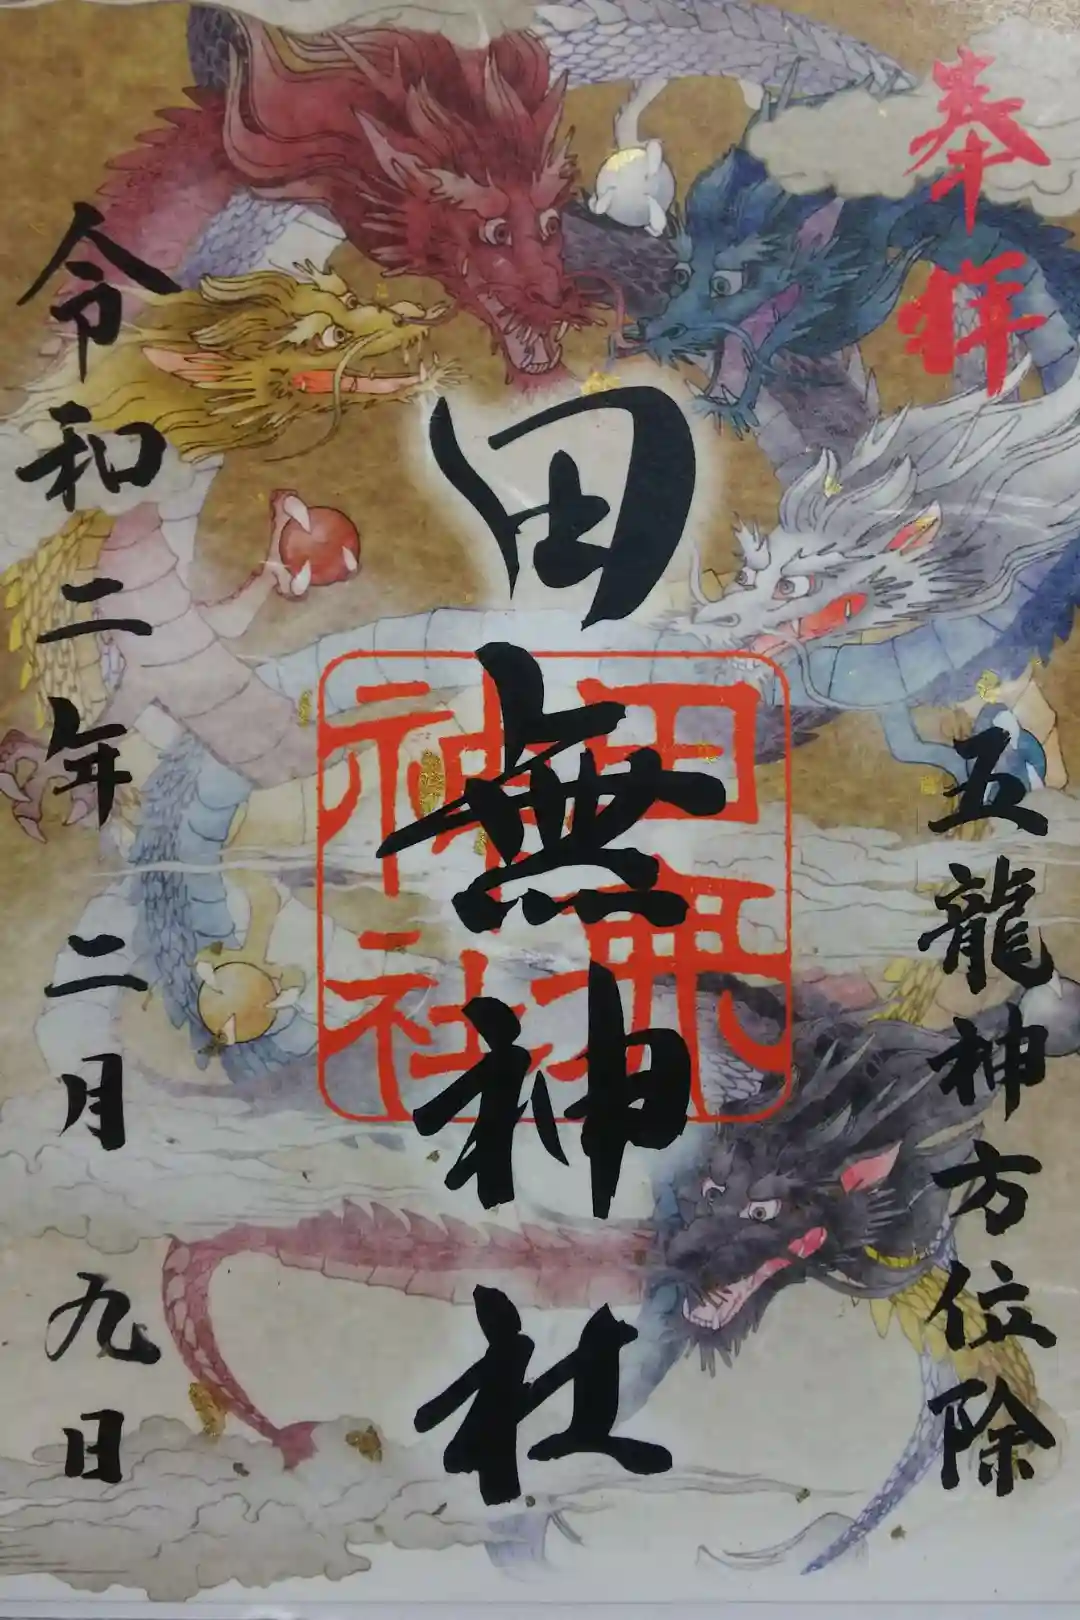 奉拝
五龍神方位除
田無神社
田無神社
令和二年二月九日